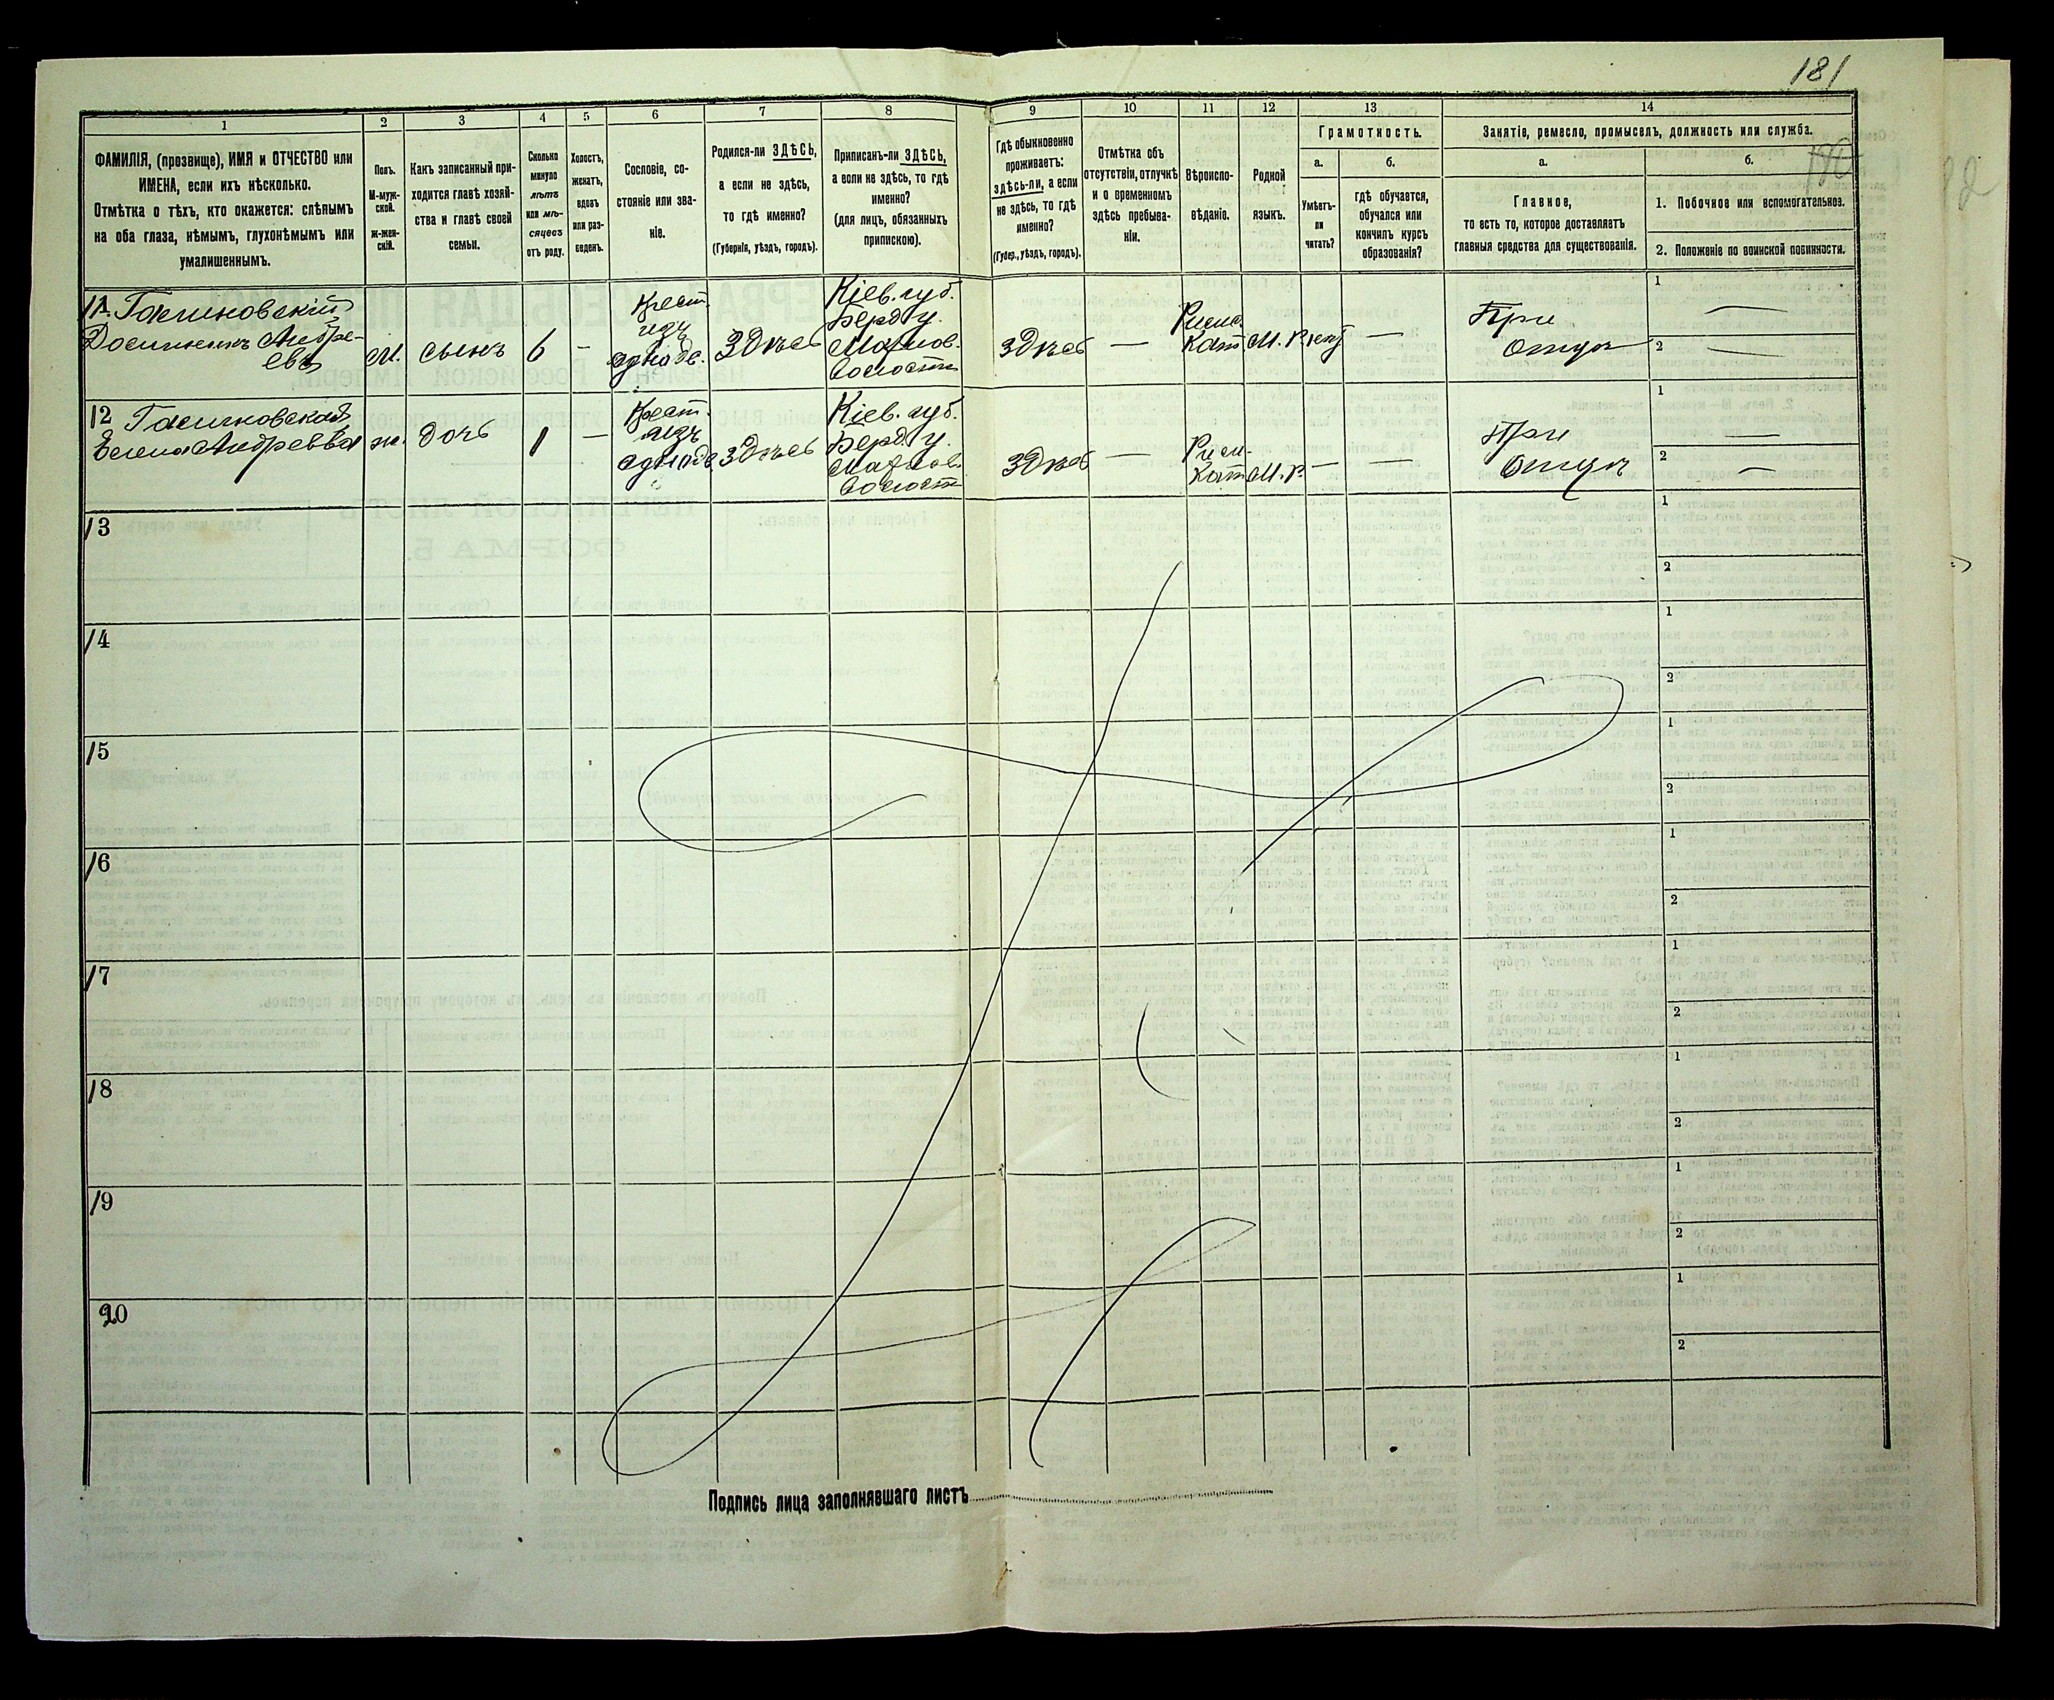 181
1
2
3
4
5
6
7
8
9
10
11
12
13
14
ФАМИЛІЯ, (прозвище), ИМЯ и ОТЧЕСТВО или
ИМЕНА, если ихъ нѣсколько.
Отмѣтка о тѣхъ, кто окажется: слѣпымъ
на оба глаза, нѣмымъ, глухонѣмымъ или
умалишеннымъ.
Полъ.
М-муж-
ской.
ж-жен-
скій.
Какъ записанный при-
ходится главѣ хозяй-
ства и главѣ своей
семьи.
Сколько
минуло
лѣтъ
или мѣ-
сяцевъ
отъ роду.
Холостъ,
женатъ,
вдовъ
или раз-
веденъ.
Сословіе, со-
стояніе или зва-
ніе.
Родился-ли ЗДѢСЬ,
а если не здѣсь,
то гдѣ именно?
(Губернія, уѣздъ, городъ).
Приписанъ-ли ЗДѢСЬ,
а если не здѣсь, то гдѣ
именно?
(для лицъ, обязанныхъ
припискою).
Гдѣ обыкновенно
проживаетъ:
здѣсь-ли, а если
не здѣсь, то гдѣ
именно?
(Губер., уѣздъ, городъ).
Отмѣтка объ
отсутствіи, отлучкѣ
и о временномъ
здѣсь пребыва-
ніи.
Вѣроиспо-
вѣданіе.
Родной
языкъ.
Грамотность.
а.
Умѣетъ-
ли
читать?
б.
гдѣ обучается,
обучался или
кончилъ курсъ
образованія?
Занятіе, ремесло, промыселъ, должность или служба.
а.
Главное,
то есть то, которое доставляетъ
главныя средства для существованія.
б.
1. Побочное или вспомогательное.
2. Положеніе по воинской повинности.
11.
Андре-
евъ
м.
сынъ
6
—
Крест.
изъ
однодв.
Здѣсь
Кіев. губ.
Берд. у.
Махнов.
волости
Здѣсь
—
Римс.
Кат.
М. Р.
—
При
отцѣ
1 —
2 —
12
Елена Андреевна
ж.
дочь
1
—
Крест.
изъ
однодв.
Здѣсь
Кіев. губ.
Берд. у.
Махнов.
волости
Здѣсь
—
Рим.
Кат.
М. Р.
—
—
При
отцѣ
1 —
2 —
13
1
2
14
1
2
15
1
2
16
1
2
17
1
2
18
1
2
19
1
2
20
1
2
Подпись лица заполнявшаго листъ